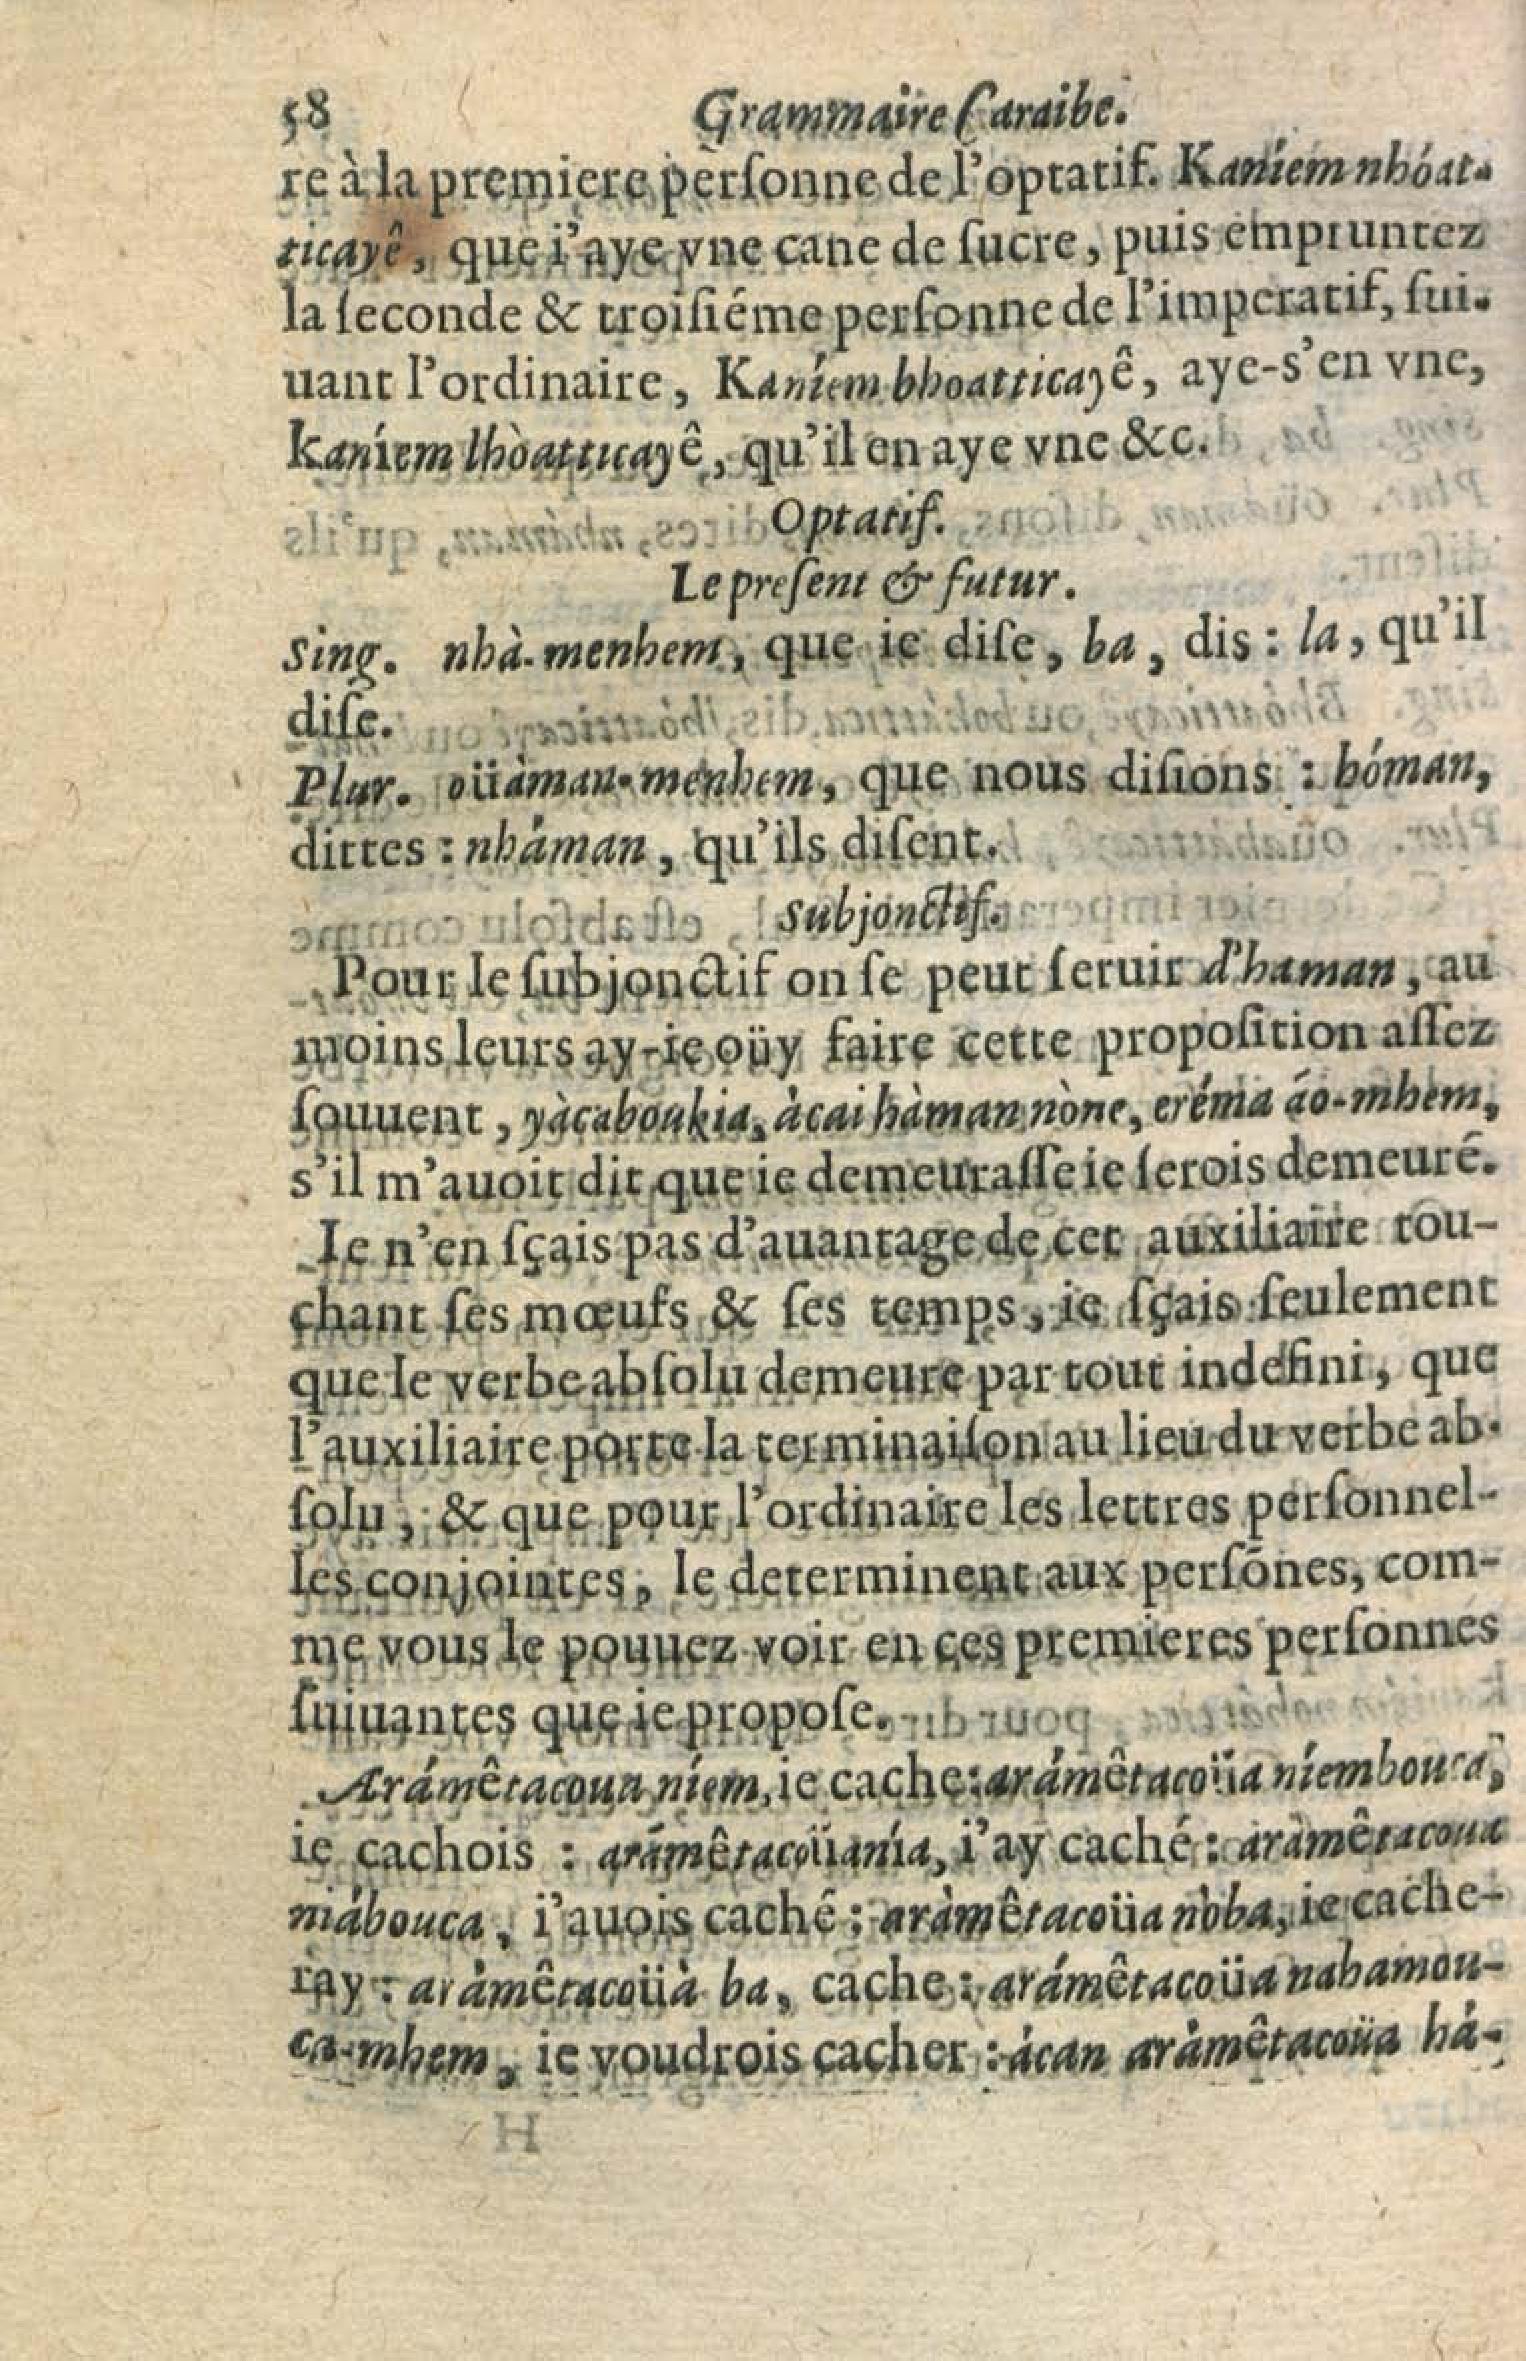 58 Grammaire Caraibe.
re à la premiere personne de l'optatif. Kaníem nhóat-
ticayê, que i'aye vne cane de sucre, puis empruntez
la seconde & troisiéme personne de l'imperatif, sui-
uant l'ordinaire, Kaníem bhoatticayê, aye-s'en vne,
kaníem lhòatticayê, qu'il en aye vne &c.
Optatif.
Le present & futur.
Sing. nhà-menhem, que ie dise, ba, dis : la, qu'il
dise.
Plur. oüàman-menhem, que nous disions : hóman,
dittes : nháman, qu'ils disent.
Subjonctif.
Pour le subjonctif on se peut seruir d'haman, au
moins leurs ay-ie oüy faire cette proposition assez
souuent, yàcaboukia, àcai hàman nòne, eréma áo-mhem,
s'il m'auoit dit que ie demeurasse ie serois demeuré.
Ie n'en sçais pas d'auantage de cet auxiliaire tou-
chant ses mœufs & ses temps, ie sçais seulement
que le verbe absolu demeure par tout indefini, que
l'auxiliaire porte la terminaison au lieu du verbe ab-
solu, & que pour l'ordinaire les lettres personnel-
les conjointes, le determinent aux persōnes, com-
me vous le pouuez voir en ces premieres personnes
suiuantes que ie propose.
Arámêtacoua níem, ie cache : arámêtacoüa níembouca,
ie cachois : arámêtacoüanía, i'ay caché : aràmêtacoua
niábouca, i'auois caché : aràmêtacoüa nòba, ie cache-
ray : aràmêtacoüà ba, cache : arámêtacoüa nahamou-
ca-mhem, ie voudrois cacher : ácan aràmêtacoüa há-